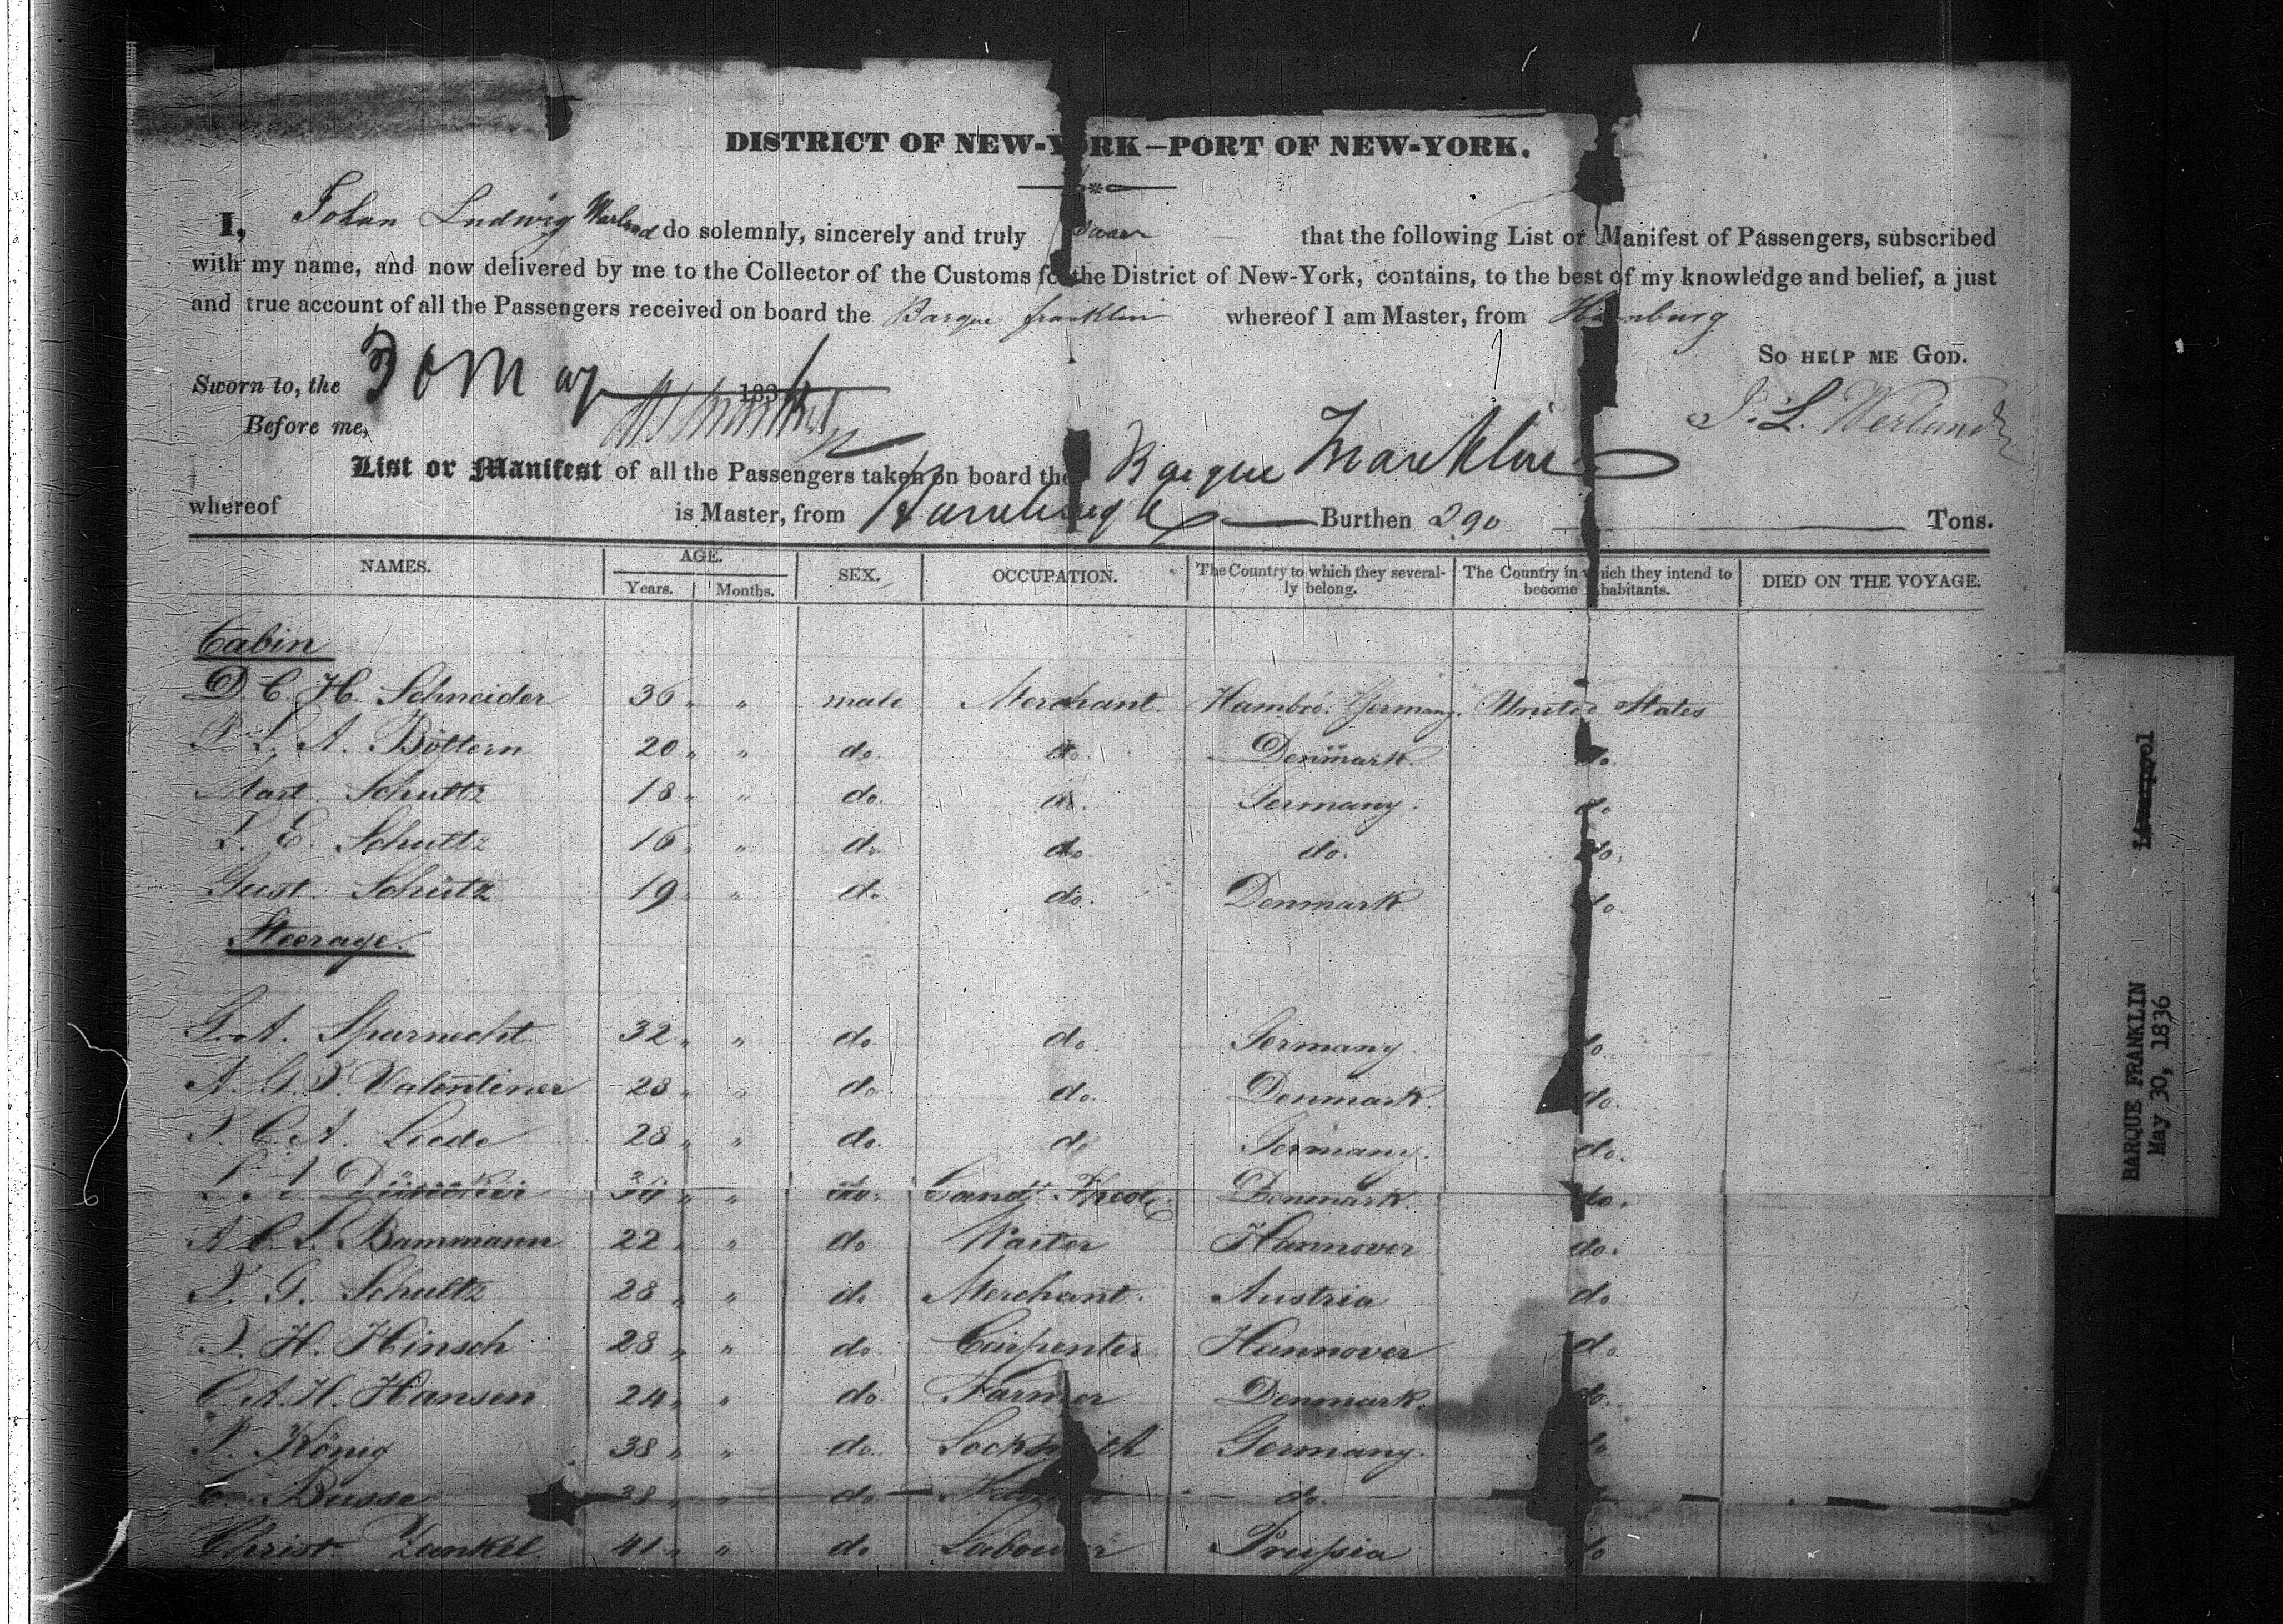 DISTRICT OF NEW-YORK—PORT OF NEW-YORK.
I, Johan Ludwig Warland do solemnly, sincerely and truly swear that the following List or Manifest of Passengers, subscribed
with my name, and now delivered by me to the Collector of the Customs for the District of New-York, contains, to the best of my knowledge and belief, a just
and true account of all the Passengers received on board the Barque franklin whereof I am Master, from Hamburg
So HELP ME GOD.
Sworn to, the 30 May 183
J. L. Werland
Before me,
List or Manifest of all the Passengers taken on board the Barque Franklin
whereof is Master, from Hamburgh Burthen 290 Tons.
NAMES. AGE. SEX. OCCUPATION. The Country to which they severally belong. The Country in which they intend to become inhabitants. DIED ON THE VOYAGE.
Years. Months.
Cabin
D. C. H. Schneider 36 " " male Merchant. Hambro. Germany. United States
L. A. Böttern 20 " " do. do. Denmark. do.
Mart. Schultz 18 " " do. do. Germany. do.
E. Schultz 16 " " do. do. do. do.
Gust. Schütz 19 " " do. do. Denmark do.
Steerage.
G. A. Sparnecht 32 " " do. do. Germany. do.
A. G. Valentiner 28 " " do. do. Denmark. do.
C. A. Leede 28 " " do. do Germany. do.
" " do. Cand. Theol. Denmark. do.
A. C. L. Bammann 22 " " do. Waiter Hannover do.
G. Schultz 28 " " do. Merchant. Austria do
H. Hinsch 28 " " do. Carpenter Hannover do.
C. A. H. Hansen 24 " " do. Farmer Denmark. do.
König 38 " " do. Locksmith Germany. do
C. Busse 38 " " do do.
Christ. Zankel. 41 " " do. Labourer Prussia do
Liverpool
BARQUE FRANKLIN
May 30, 1836